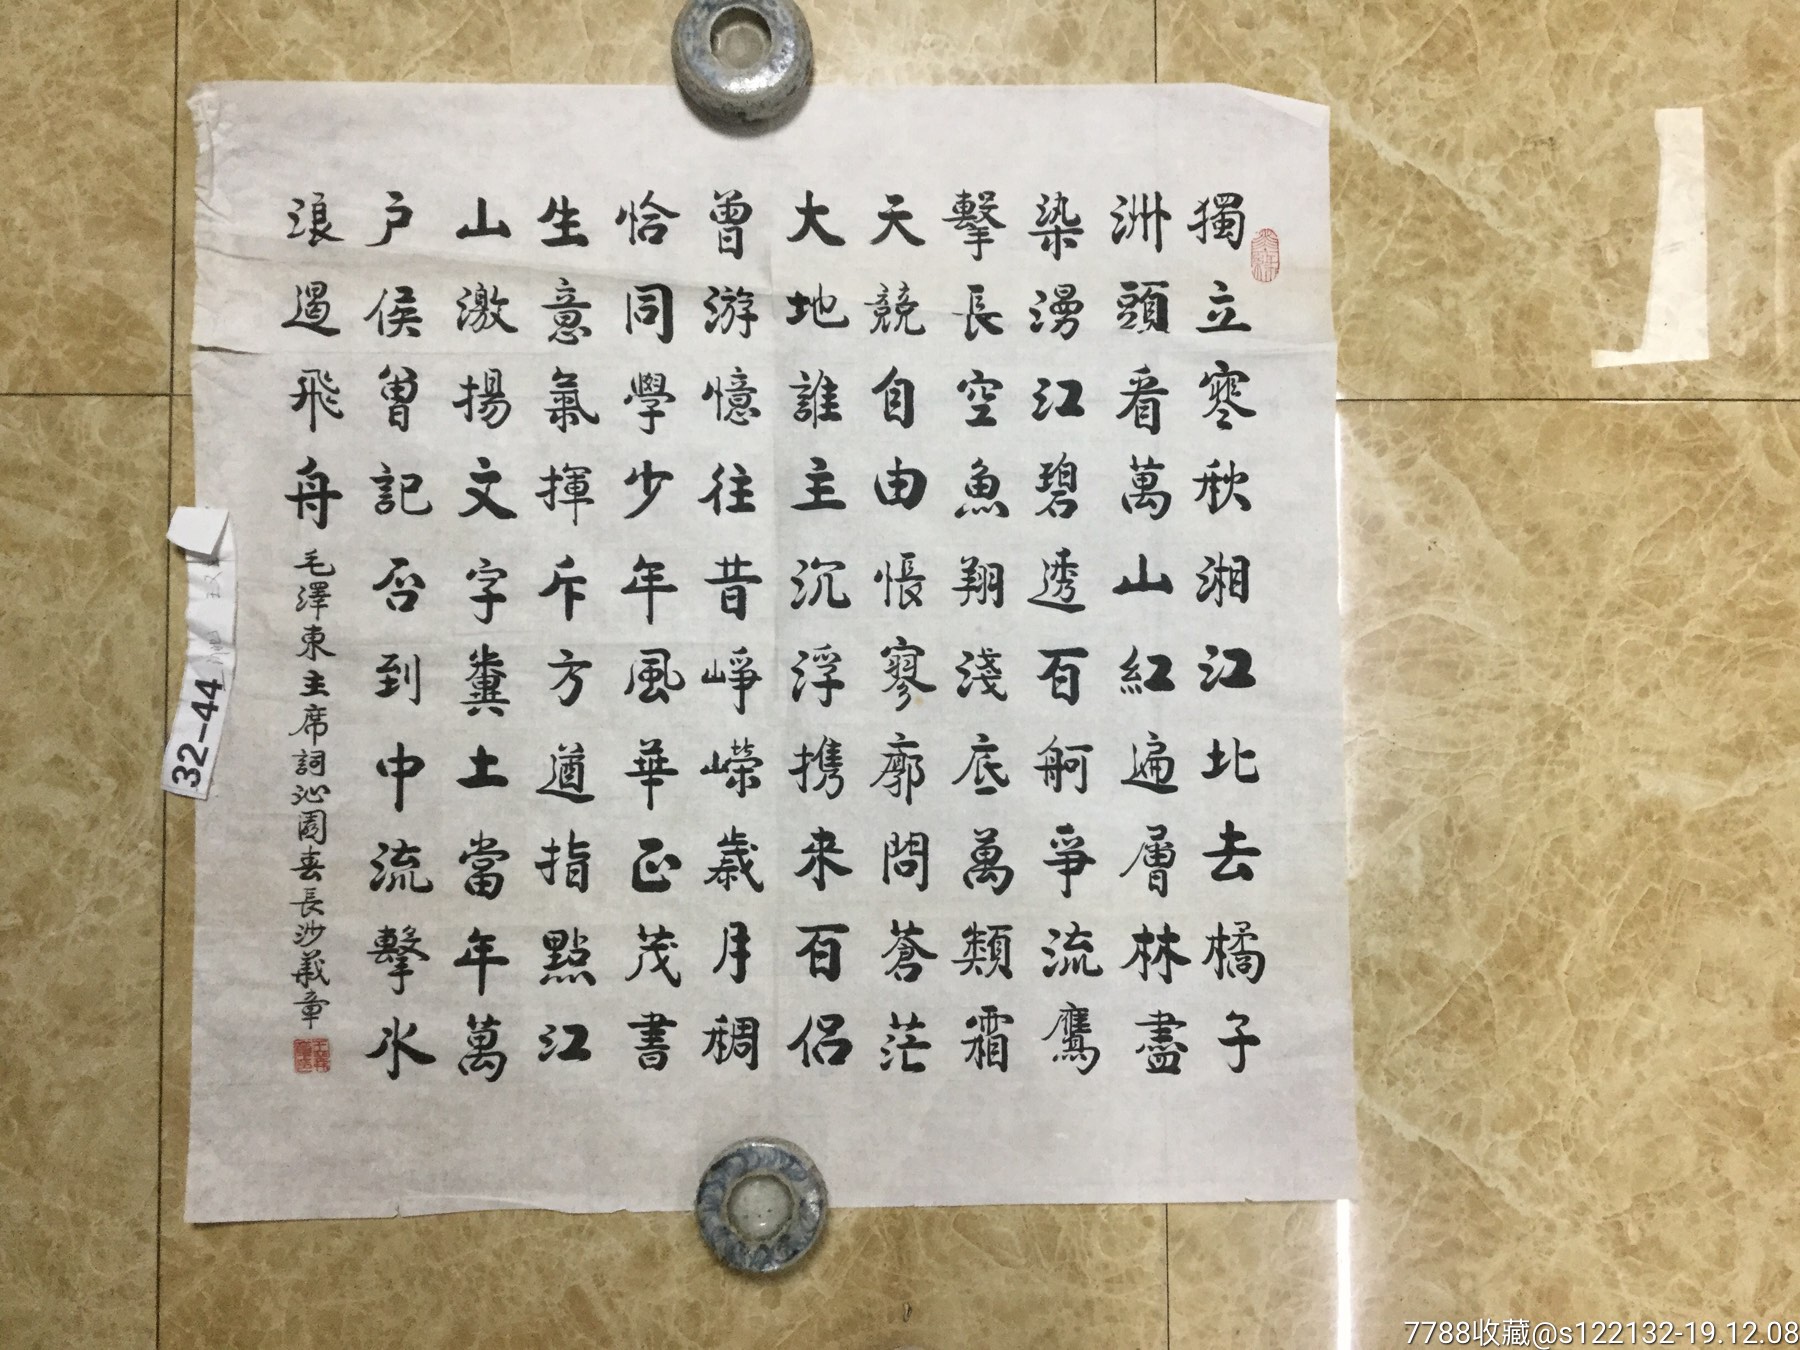 獨立寒秋湘江北去橘子
洲頭看萬山紅遍層林盡
染漫江碧透百舸爭流鷹
擊長空魚翔淺底萬類霜
天競自由悵寥廓問蒼茫
大地誰主沉浮携來百侣
曾游憶往昔崢嶸歲月稠
恰同學少年風華正茂書
生意氣揮斥方遒指點江
山激揚文字糞土當年萬
户侯曾記否到中流擊水
浪遏飛舟
毛澤東主席詞沁園春長沙義章
32-44
7788收藏@s122132-19.12.08